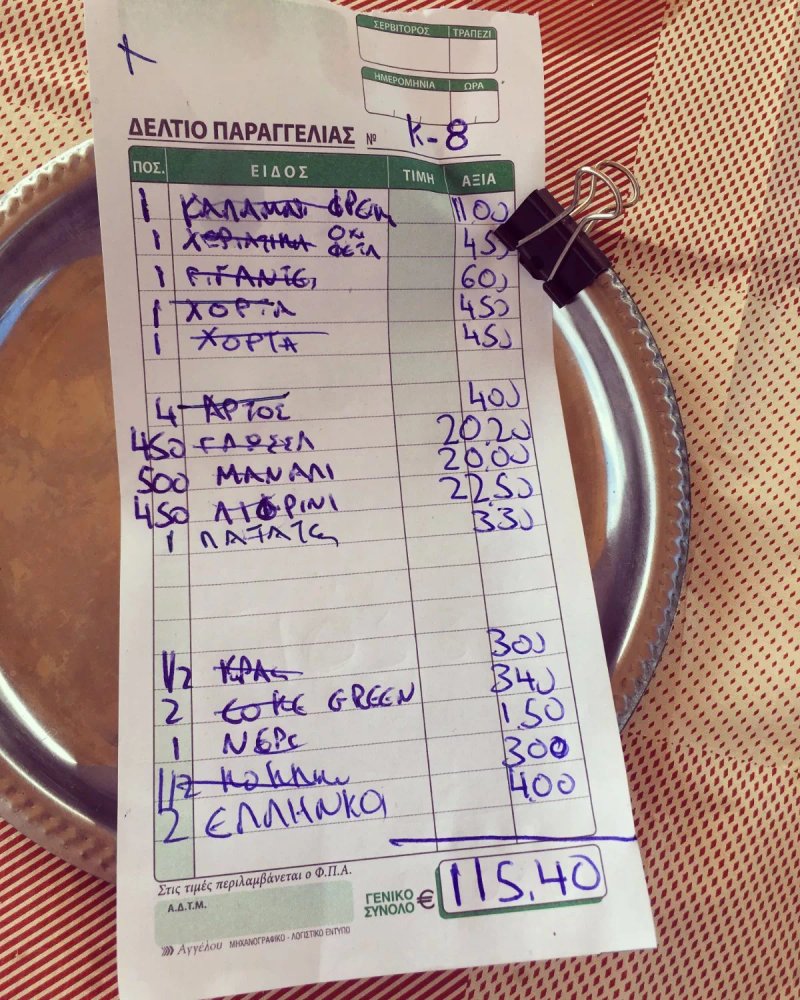 ΣΕΡΒΙΤΟΡΟΣ ΤΡΑΠΕΖΙ
ΗΜΕΡΟΜΗΝΙΑ ΩΡΑ
ΔΕΛΤΙΟ ΠΑΡΑΓΓΕΛΙΑΣ Νο K-8
ΠΟΣ. ΕΙΔΟΣ ΤΙΜΗ ΑΞΙΑ
1 ΚΑΛΑΜΑΙ ΦΡΕΣΚ 1100
1 ΧΩΡΙΑΤΙΚΗ ΟΧΙ ΦΕΤΑ 450
1 ΓΙΓΑΝΤΕς 600
1 ΧΟΡΤΑ 450
1 ΧΟΡΤΑ 450
4 ΑΡΤΟΣ 400
450 ΓΛΩΣΣΑ 20.20
500 ΜΑΝΑΛΙ 20.00
450 ΛΙΘΡΙΝΙ 22.50
1 ΠΑΤΑΤΕς 330
1/2 ΚΡΑΣ 300
2 COKE GREEN 340
1 ΝΕΡΟ 1.50
1/2 300
2 ΕΛΛΗΝΚΟΙ 400
Στις τιμές περιλαμβάνεται ο Φ.Π.Α.
Α.Δ.Τ.Μ.
ΓΕΝΙΚΟ ΣΥΝΟΛΟ € 115.40
Αγγέλου ΜΗΧΑΝΟΓΡΑΦΙΚΟ - ΛΟΓΙΣΤΙΚΟ ΕΝΤΥΠΟ